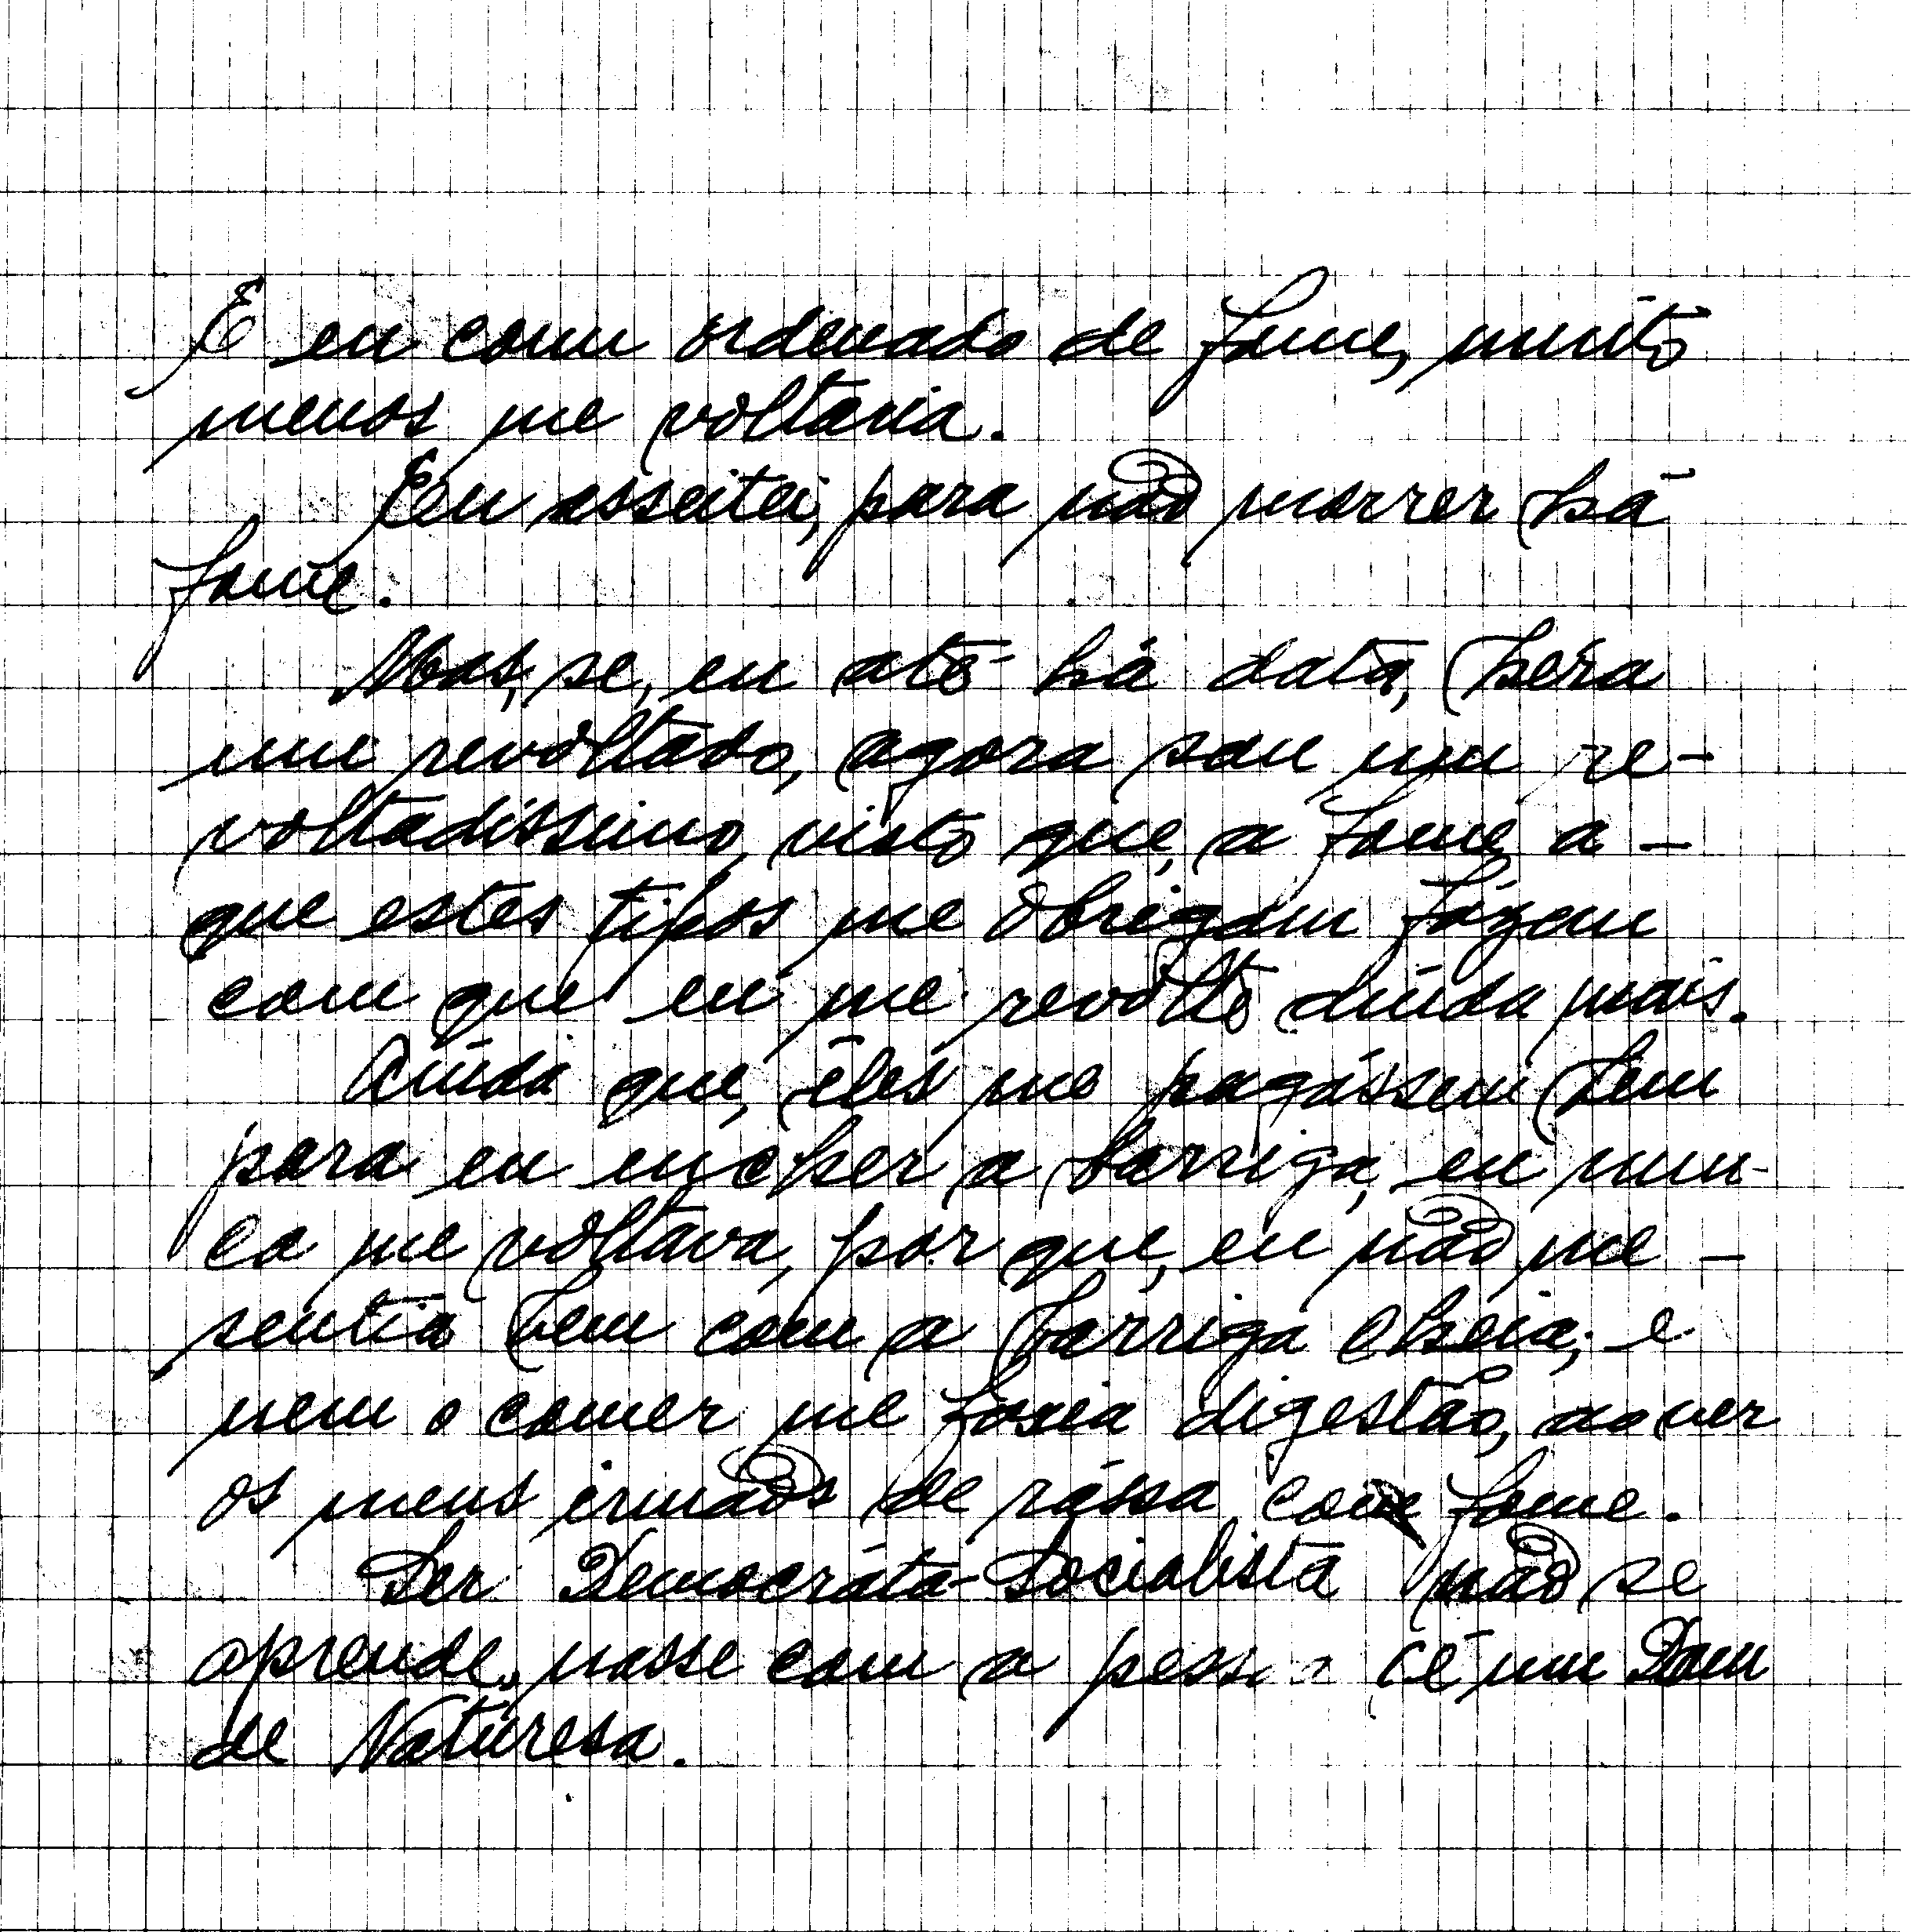 E eu com ordenado de fome, muito
menos me voltaria.
Eeu asseitei, para não morrer há
fome.
Mas, se, eu até há data, hera
um revoltado, agora sou um re-
voltadissimo, visto que, a fome, a -
que estes tipos me obrigam fázem
com que eu me revolto ainda mais.
Ainda que, êles me pagássem bem
para eu encher a barriga, eu nun-
ca me voltava, por que, eu não me -
sentia bem com a barriga cheia; e
nem o comer me fasia digestão, ao ver
os meus irmãos de rássa com fome.
Ser Democráta-Socialista não se
aprende, nasse com a é um Dom
de Naturesa.